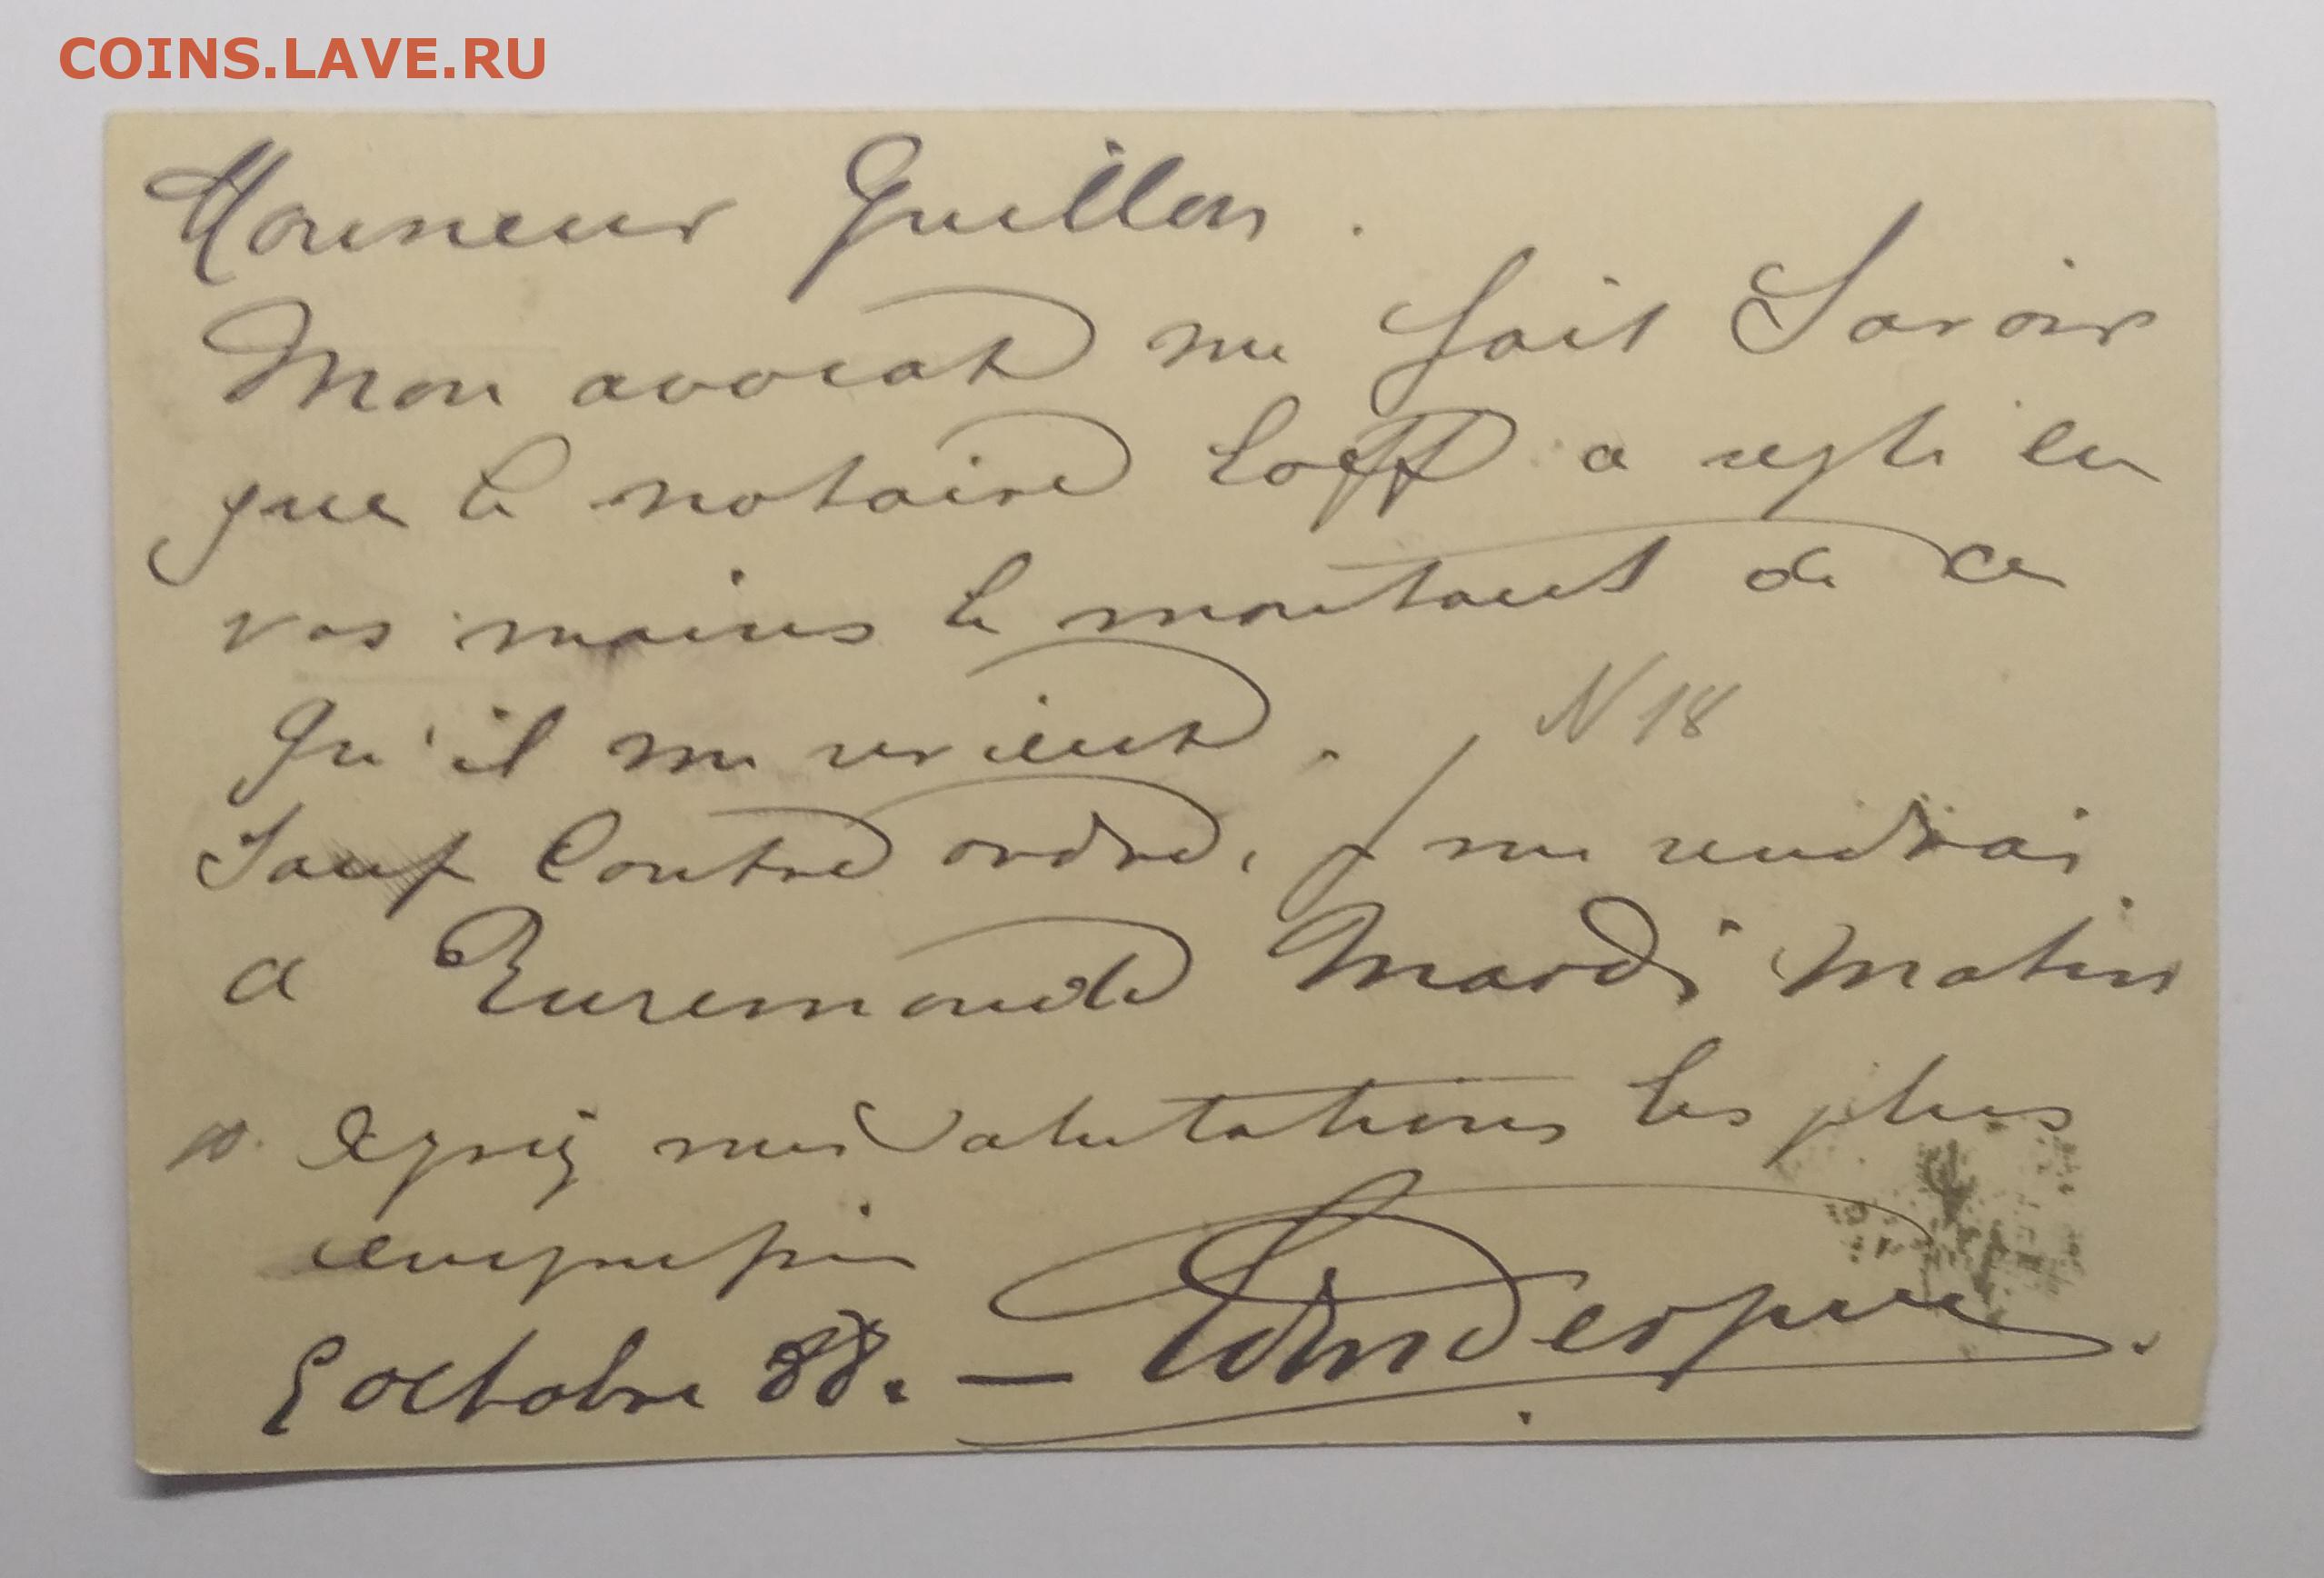 COINS.LAVE.RU
Monsieur Guillon.
Mon avocat me fait Savoir
que le notaire Loff a réglé en
vos mains le montant de ce
Qu'il me revient.
N 18
Sauf Contre ordre, je me rendrai
a Ruremonde Mardi matin
mes Salutations les plus
octobre 88. —